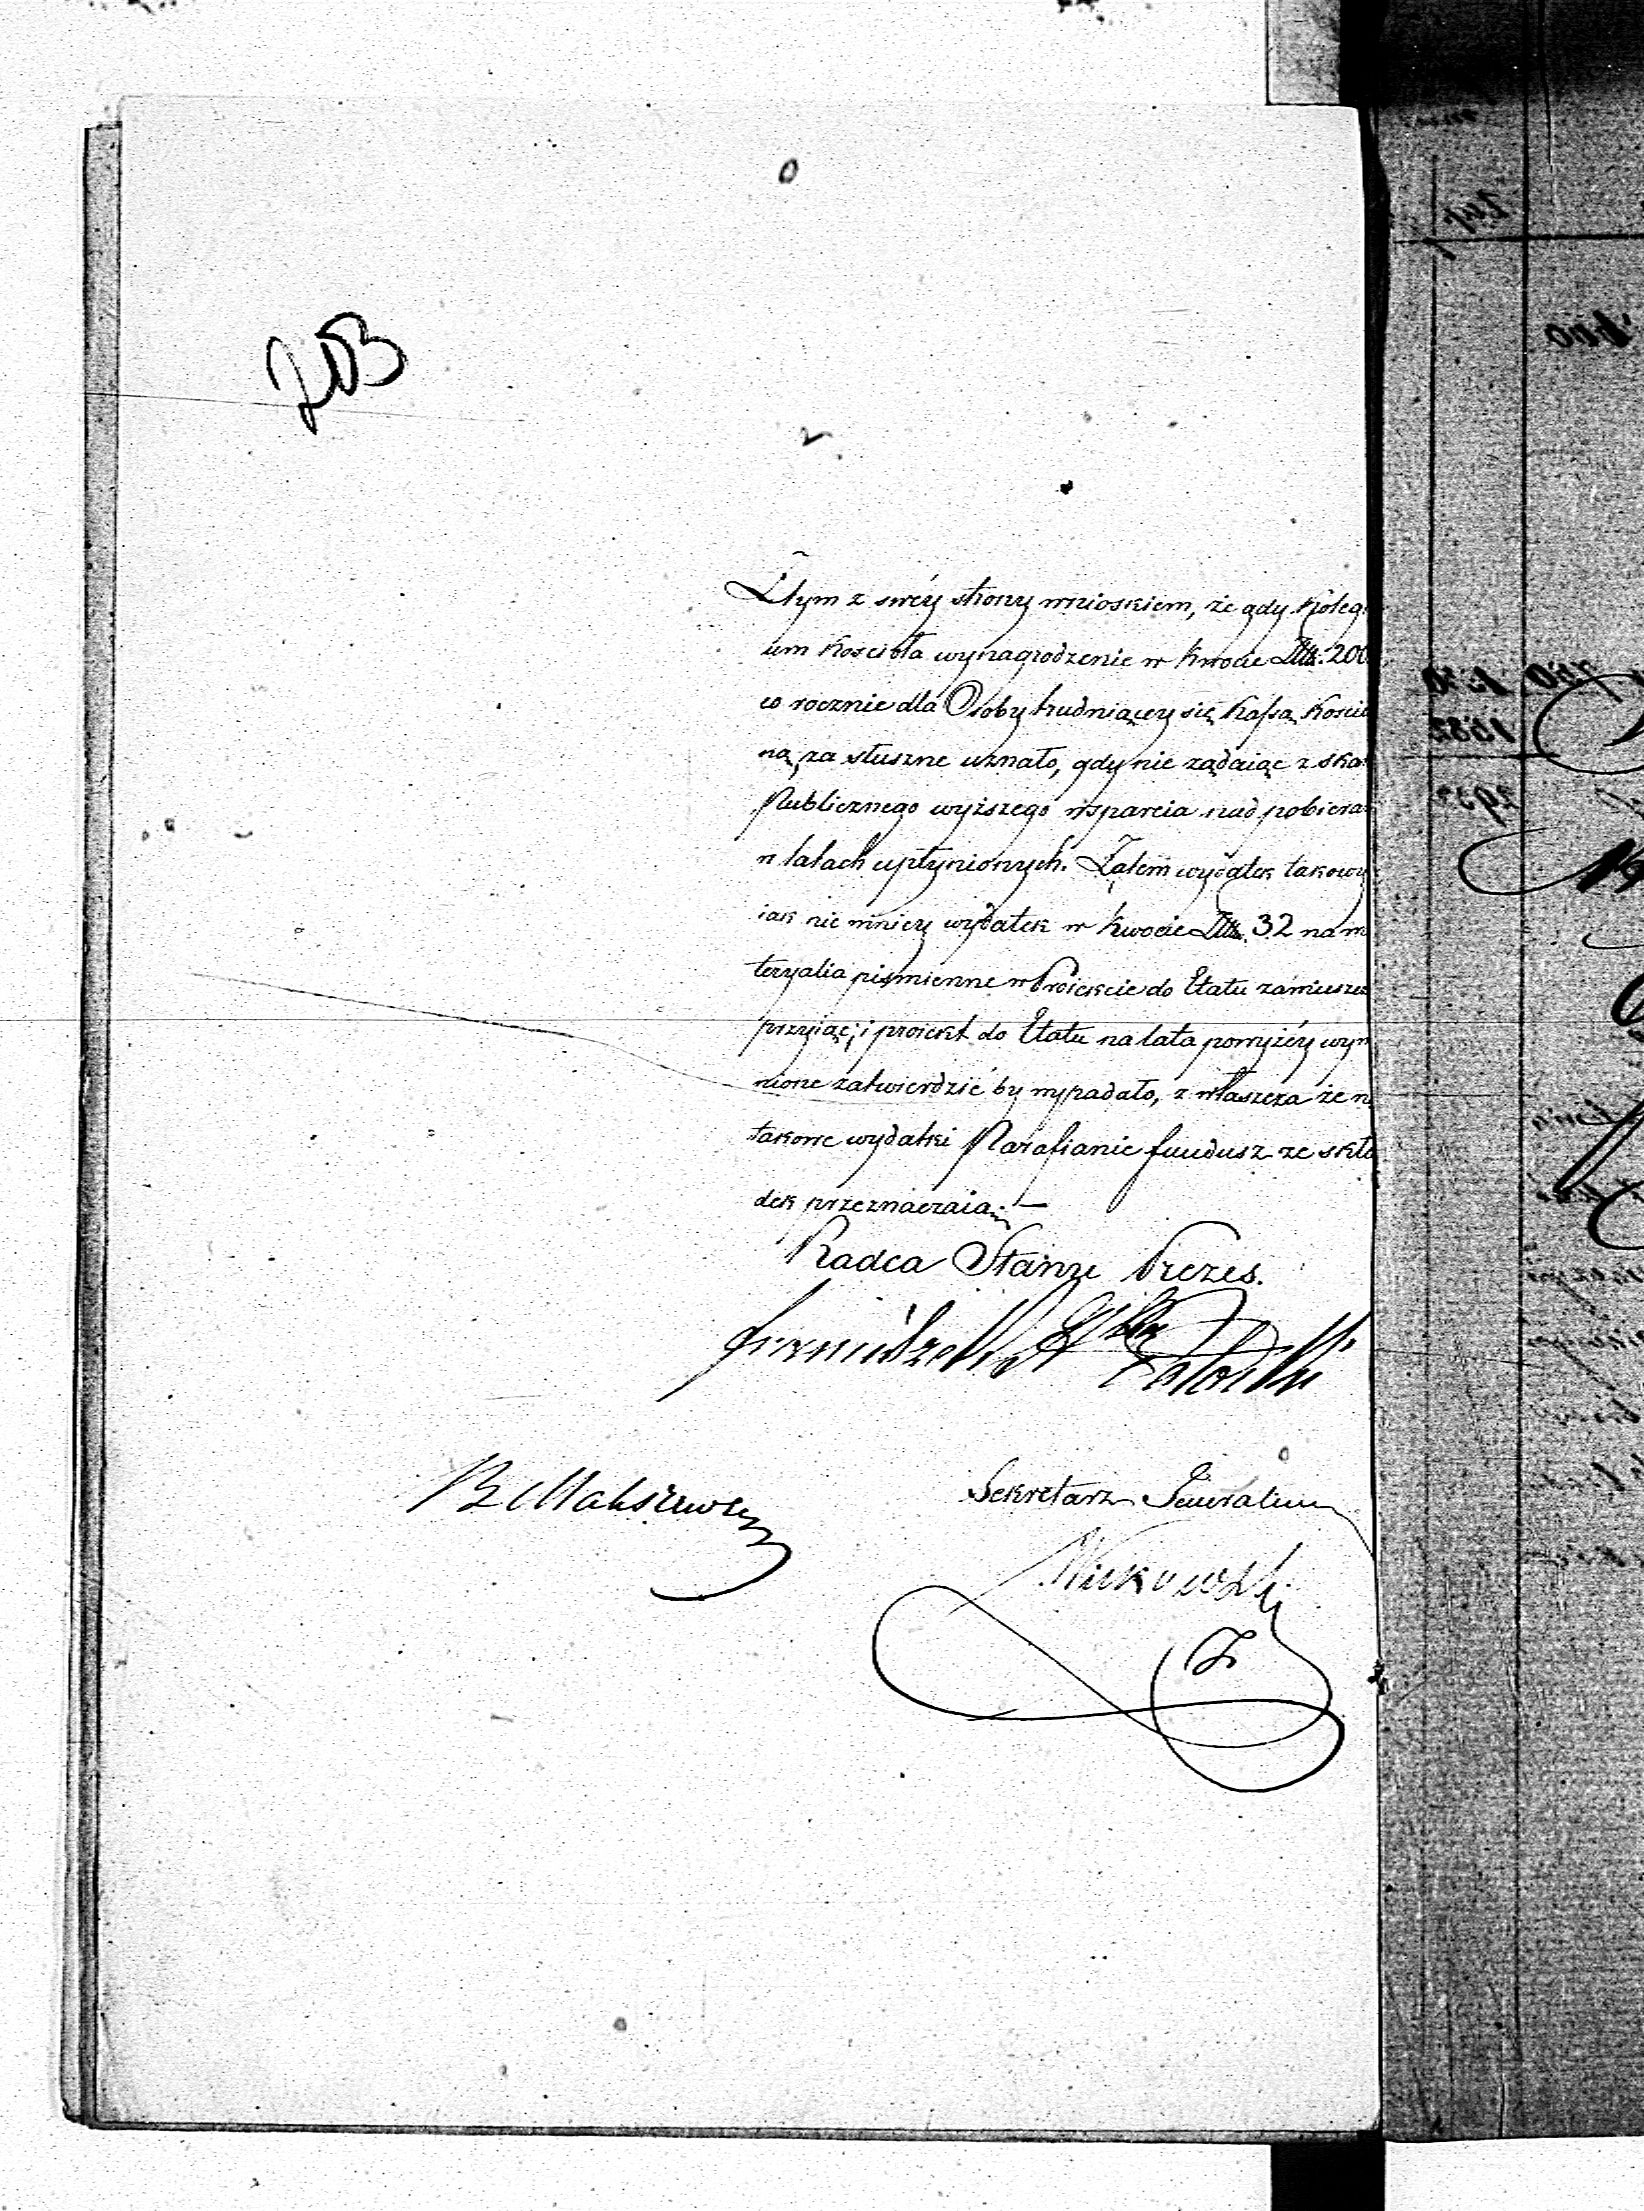 203
Ztym z swéy strony wnioskiem, że gdy Koleg
um Kościoła wynagrodzenie w kwocie 200
co rocznie dla Osoby trudniącey się Kassą Kościel
ną, za słuszne uznało, gdy nie żądaiąc z ska
Publicznego wyższego wsparcia nad pobiera
w latach upłynionych. Zatem wydatek takowy
iak nie mniey wydatek w kwocie 32 na m
teryalia piśmienne w Proiekcie do Etatu zamieszcz
przyiąć; i proiekt do Etatu na lata powyżéy wym
nione zatwierdzić by wypadało, z właszcza że n
takowe wydatki Parafianie fundusz ze skła
dek przeznaczaią. —
Radca Stanu Prezes.
Sekretarz Generalny